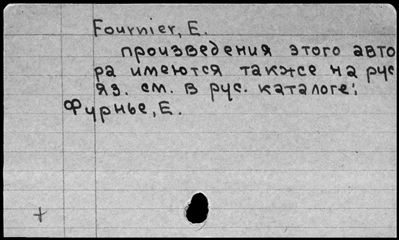 Fournier, E.
произведения этого авто
ра имеются также на рус
яз. см. в рус. каталоге:
Фурнье, Е.
+